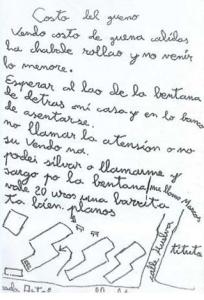 Costo del gueno
Vendo costo de guena calidas
ha chabale rollao y no venir
lo menore.
Esperar al lao de la bentana
de detras mi casa y en lo banco
de asentarse.
no llamar la atension o no
su vendo na.
podei silvar o llamarme y
sargo po la bentana/me llamo Marcos
vale 20 uros una barrita
ta bien. planos
calle Huelva
tituto